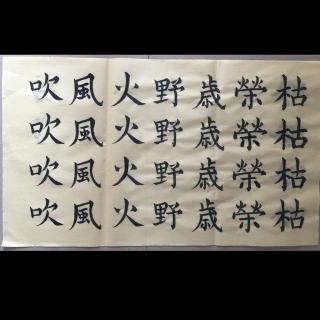 枯枯枯枯
榮榮榮榮
歳歳歳歳
野野野野
火火火火
風風風風
吹吹吹吹